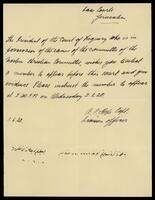 Law Courts
Jerusalem
The President of the Court of Enquiry who is in
possession of the names of the committee of the
Moslem Christian Committee, wishes you to detail
a member to appear before this court and give
evidence. Please instruct the member to attend
at on Wednesday
Capt.
Liaison Officer